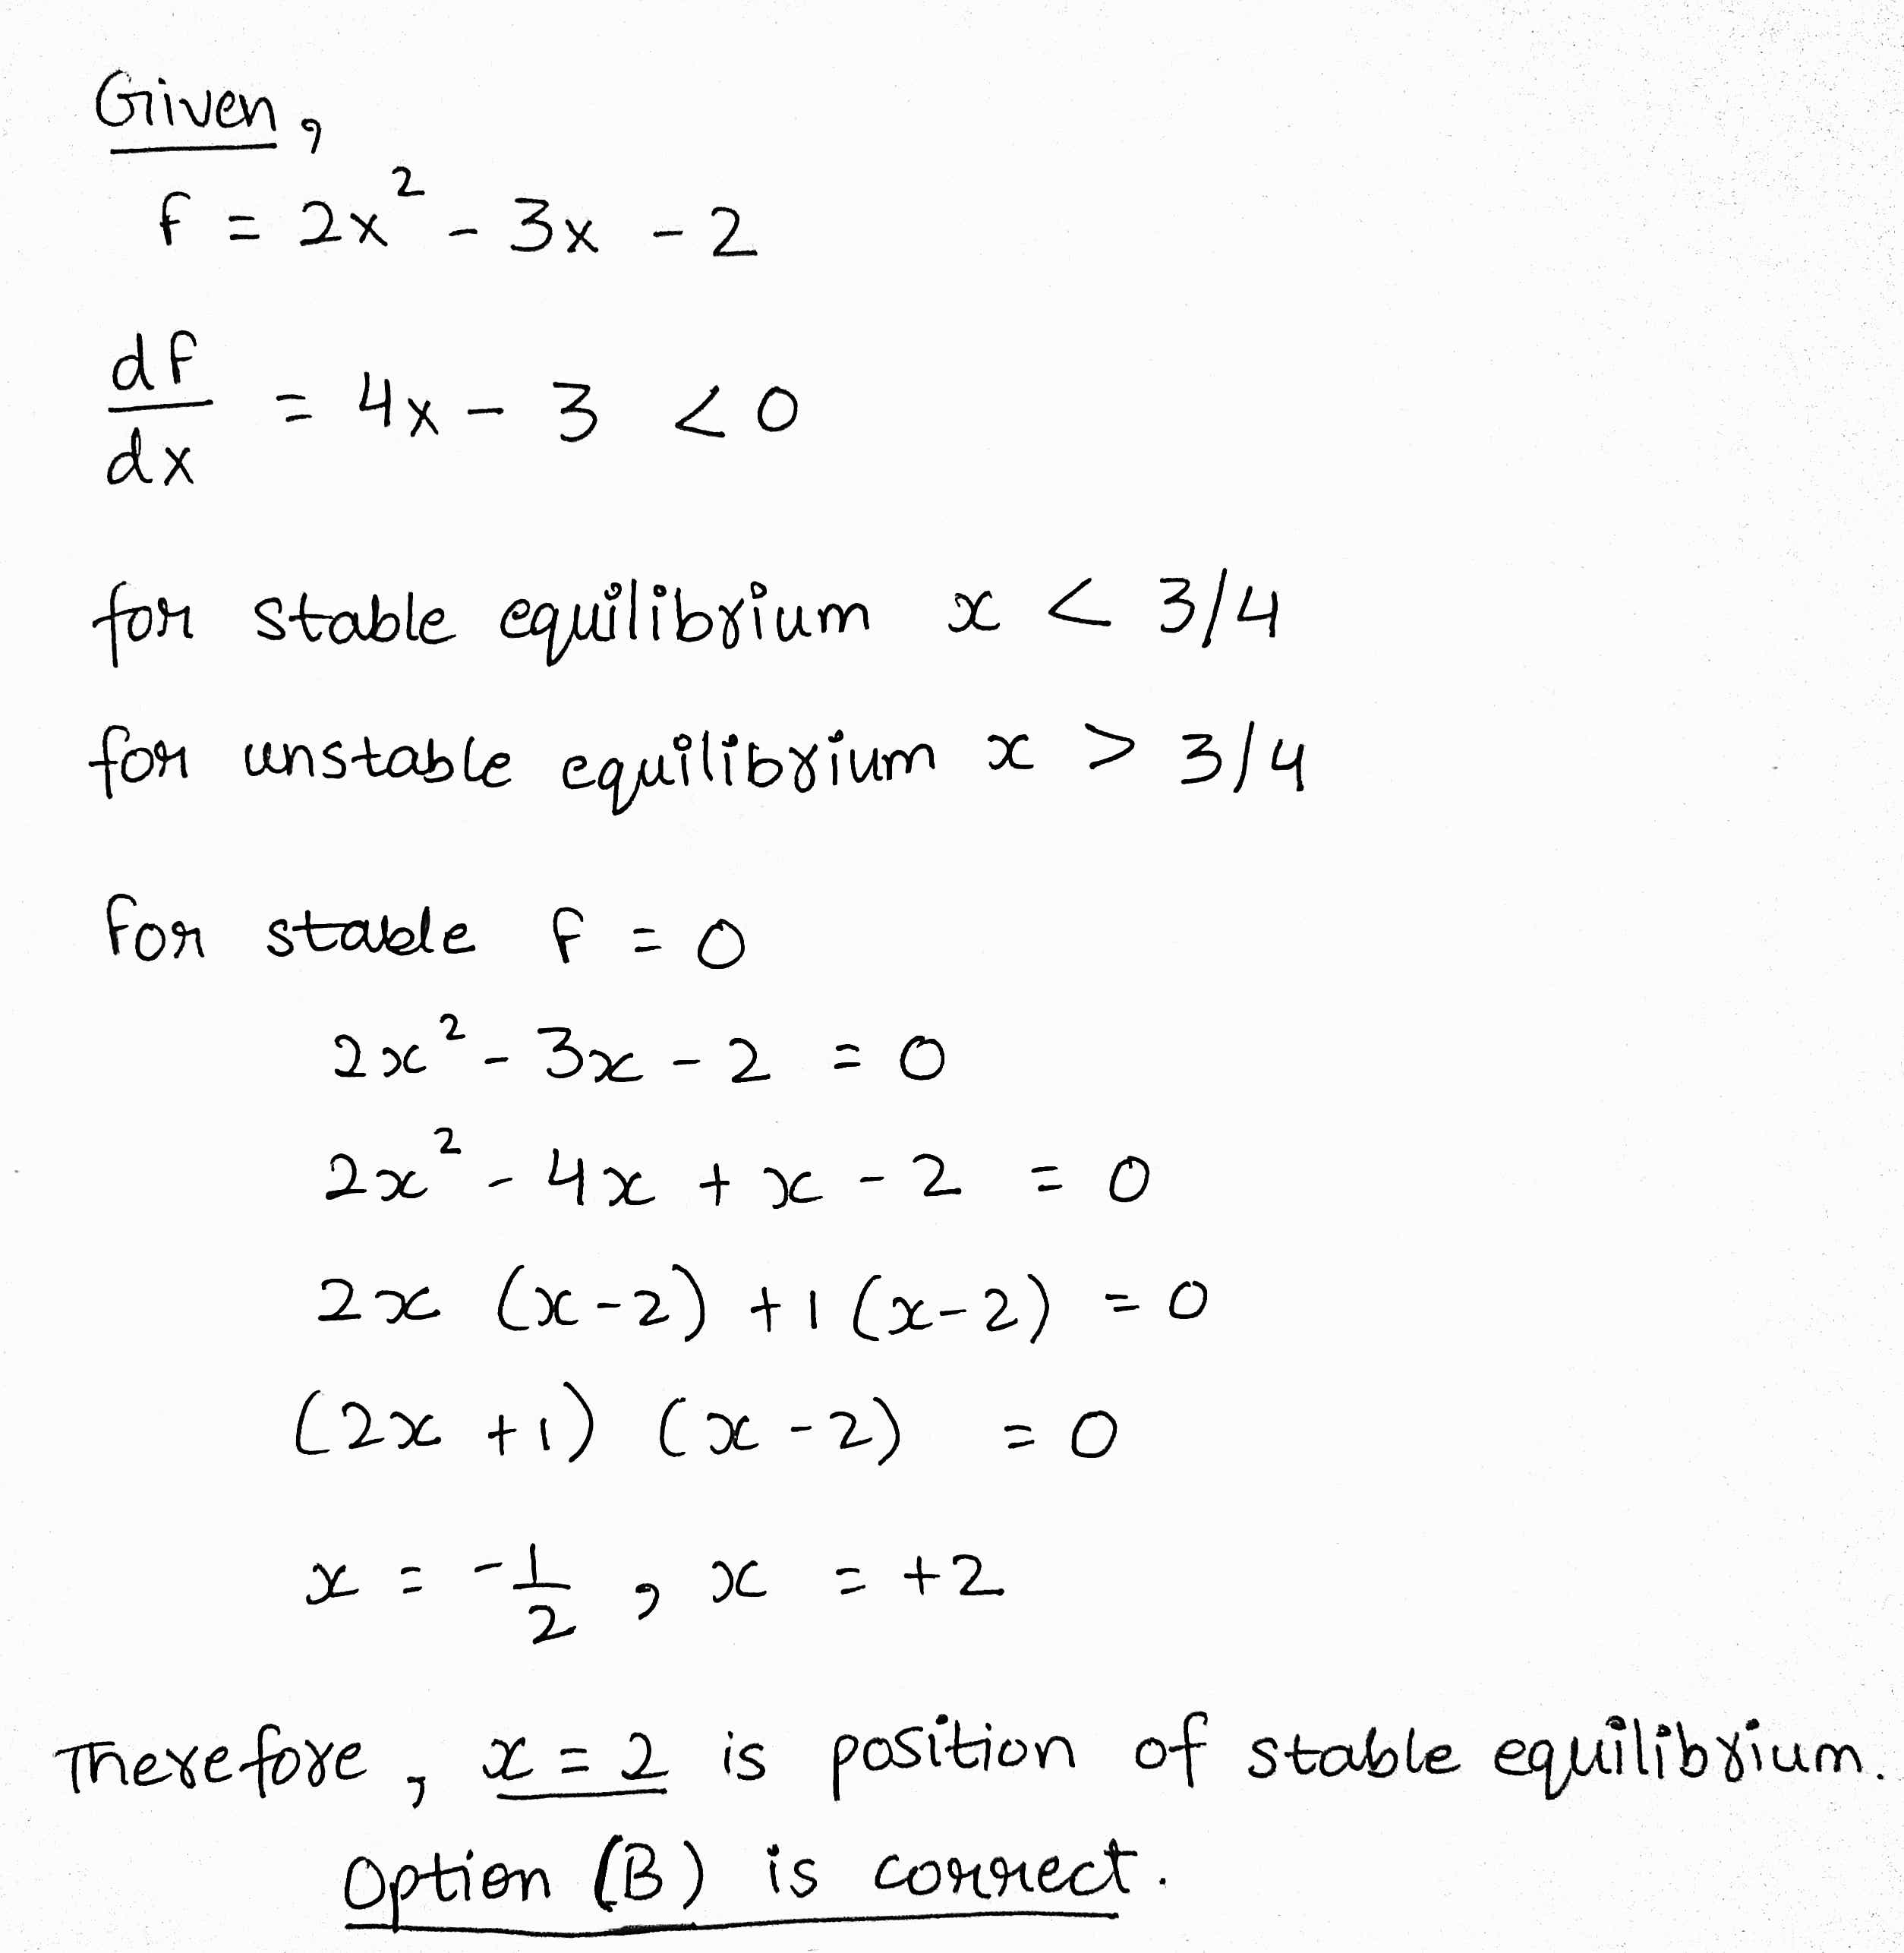 Given,
f = 2x² - 3x - 2
df/dx = 4x - 3 < 0
for stable equilibrium x < 3/4
for unstable equilibrium x > 3/4
For stable f = 0
2x² - 3x - 2 = 0
2x² - 4x + x - 2 = 0
2x (x-2) + 1 (x-2) = 0
(2x +1) (x -2) = 0
x = -1/2 , x = +2
Therefore, x = 2 is position of stable equilibrium.
Option (B) is correct.